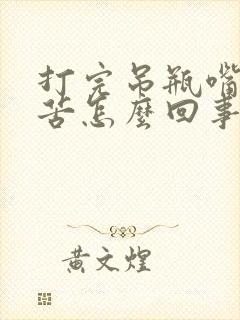 打完吊瓶嘴
苦怎麼回事
黄文煌